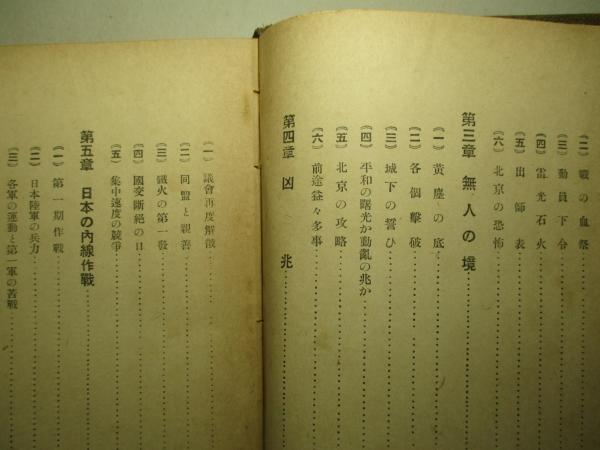 (二) 戰の血祭
(三) 動員下令
(四) 電光石火
(五) 出師表
(六) 北京の恐怖
第三章 無人の境
(一) 黄塵の底
(二) 各個擊破
(三) 城下の誓ひ
(四) 平和の曙光か動亂の兆か
(五) 北京の攻略
(六) 前途益々多事
第四章 凶兆
(一) 議會再度解散
(二) 同盟と親善
(三) 戰火の第一發
(四) 國交斷絶の日
(五) 集中速度の競爭
第五章 日本の內線作戰
(一) 第一期作戰
(二) 日本陸軍の兵力
(三) 各軍の運動と第一軍の苦戰